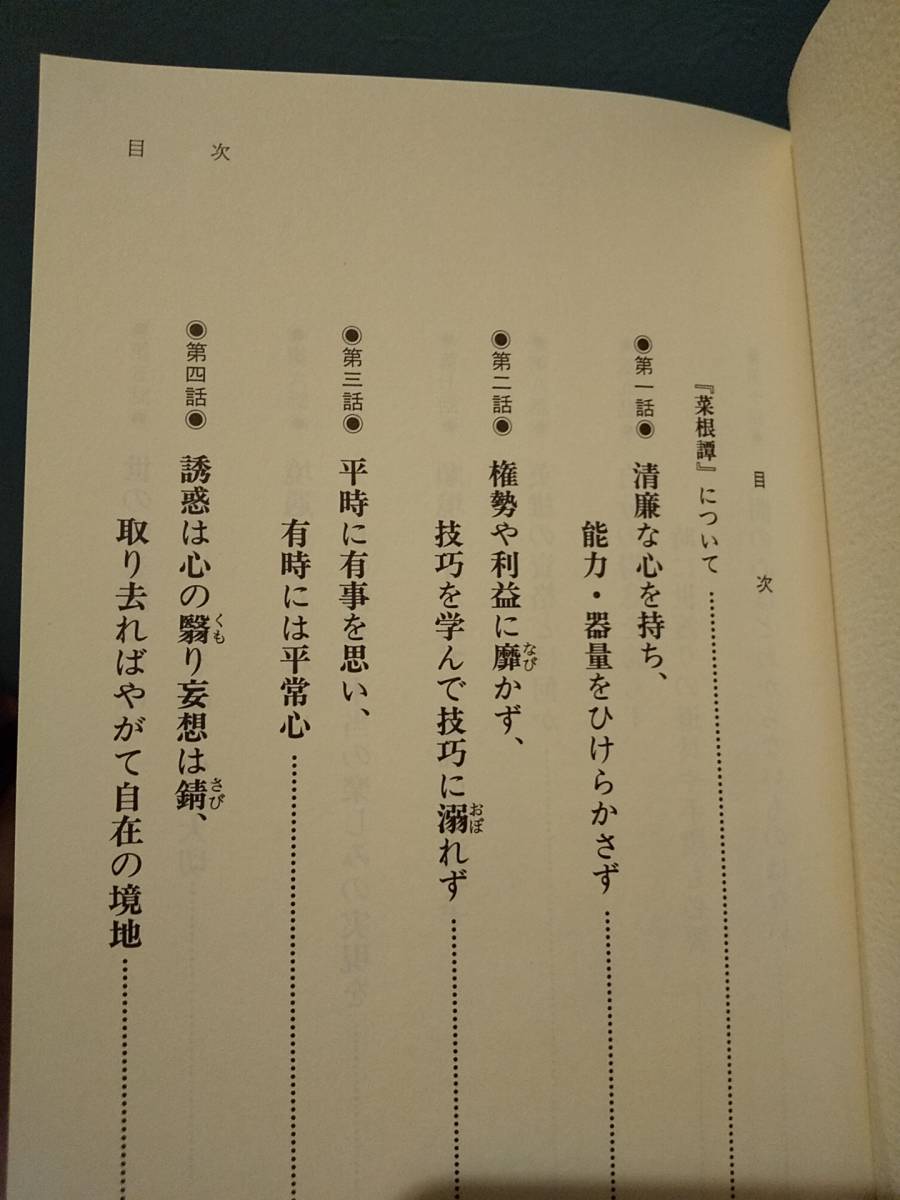 目次
目次
『菜根譚』について
◉第一話◉ 清廉な心を持ち、
能力・器量をひけらかさず
◉第二話◉ 権勢や利益に靡かず、
なび
技巧を学んで技巧に溺れず
おぼ
◉第三話◉ 平時に有事を思い、
有時には平常心
◉第四話◉ 誘惑は心の翳り妄想は錆、
くも
さび
取り去ればやがて自在の境地